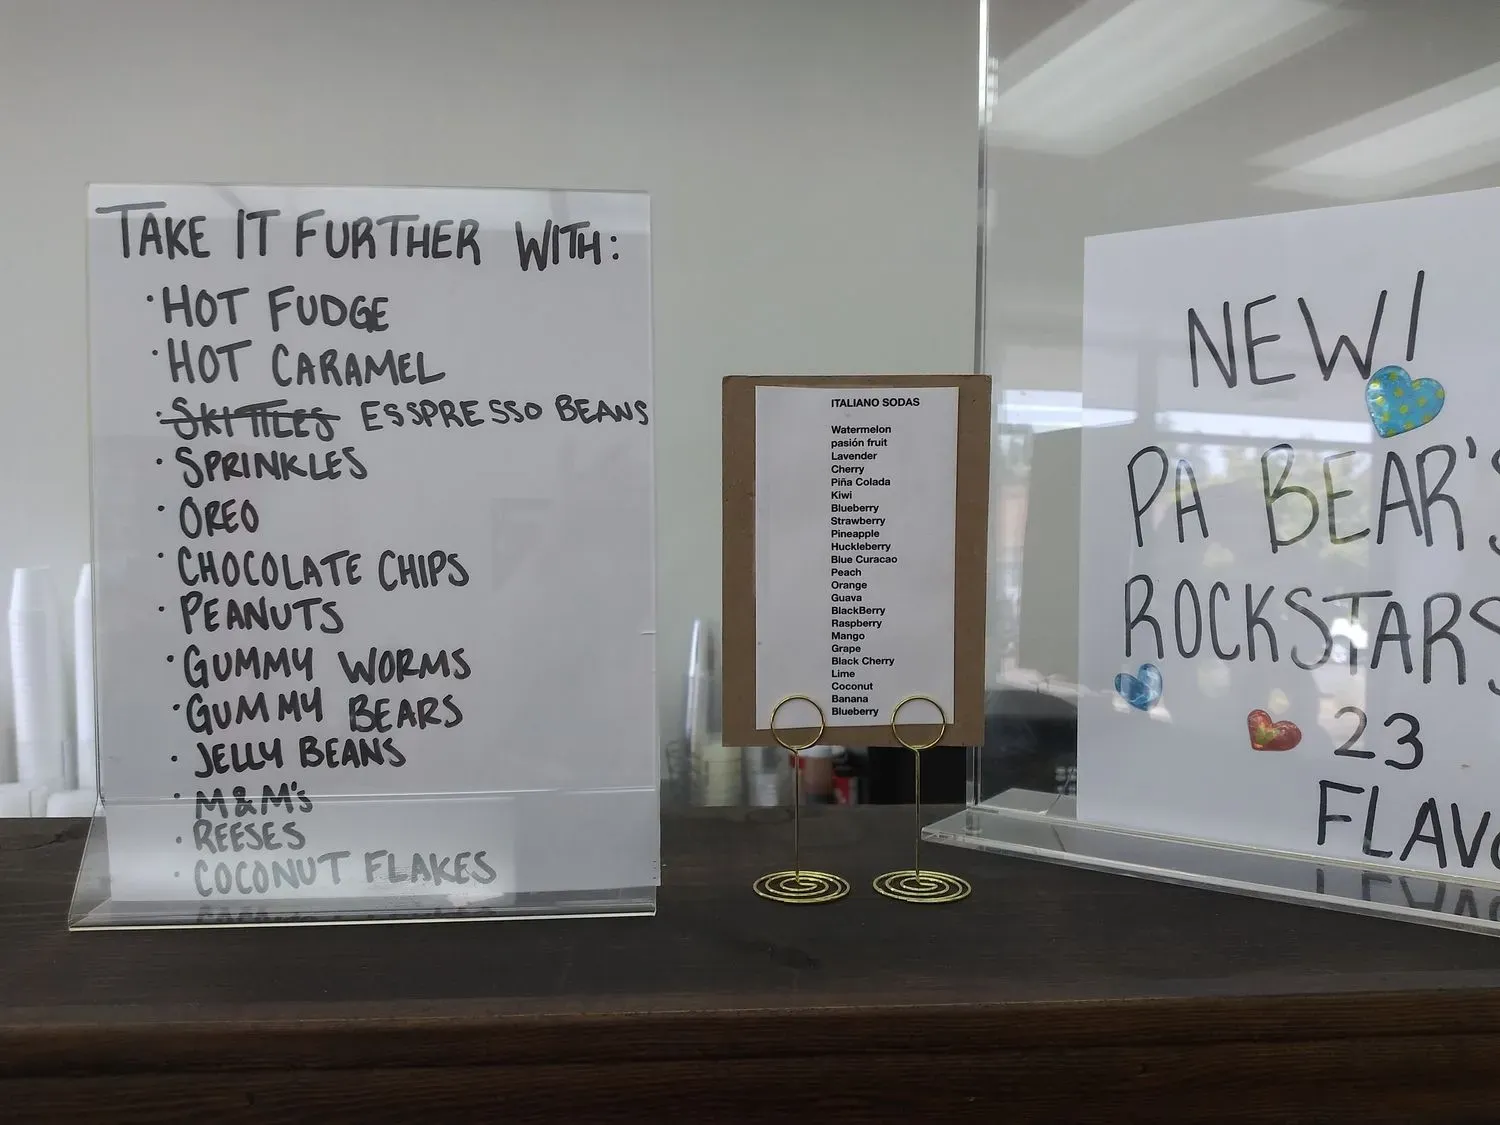 TAKE IT FURTHER WITH:
·HOT FUDGE
·HOT CARAMEL
·SKITTLES ESSPRESSO BEANS
·SPRINKLES
·OREO
·CHOCOLATE CHIPS
·PEANUTS
·GUMMY WORMS
·GUMMY BEARS
·JELLY BEANS
·M&M's
·REESES
·COCONUT FLAKES
ITALIANO SODAS
Watermelon
pasión fruit
Lavender
Cherry
Piña Colada
Kiwi
Blueberry
Strawberry
Pineapple
Huckleberry
Blue Curacao
Peach
Orange
Guava
BlackBerry
Raspberry
Mango
Grape
Black Cherry
Lime
Coconut
Banana
Blueberry
NEW!
PA BEAR'S
ROCKSTARS
23